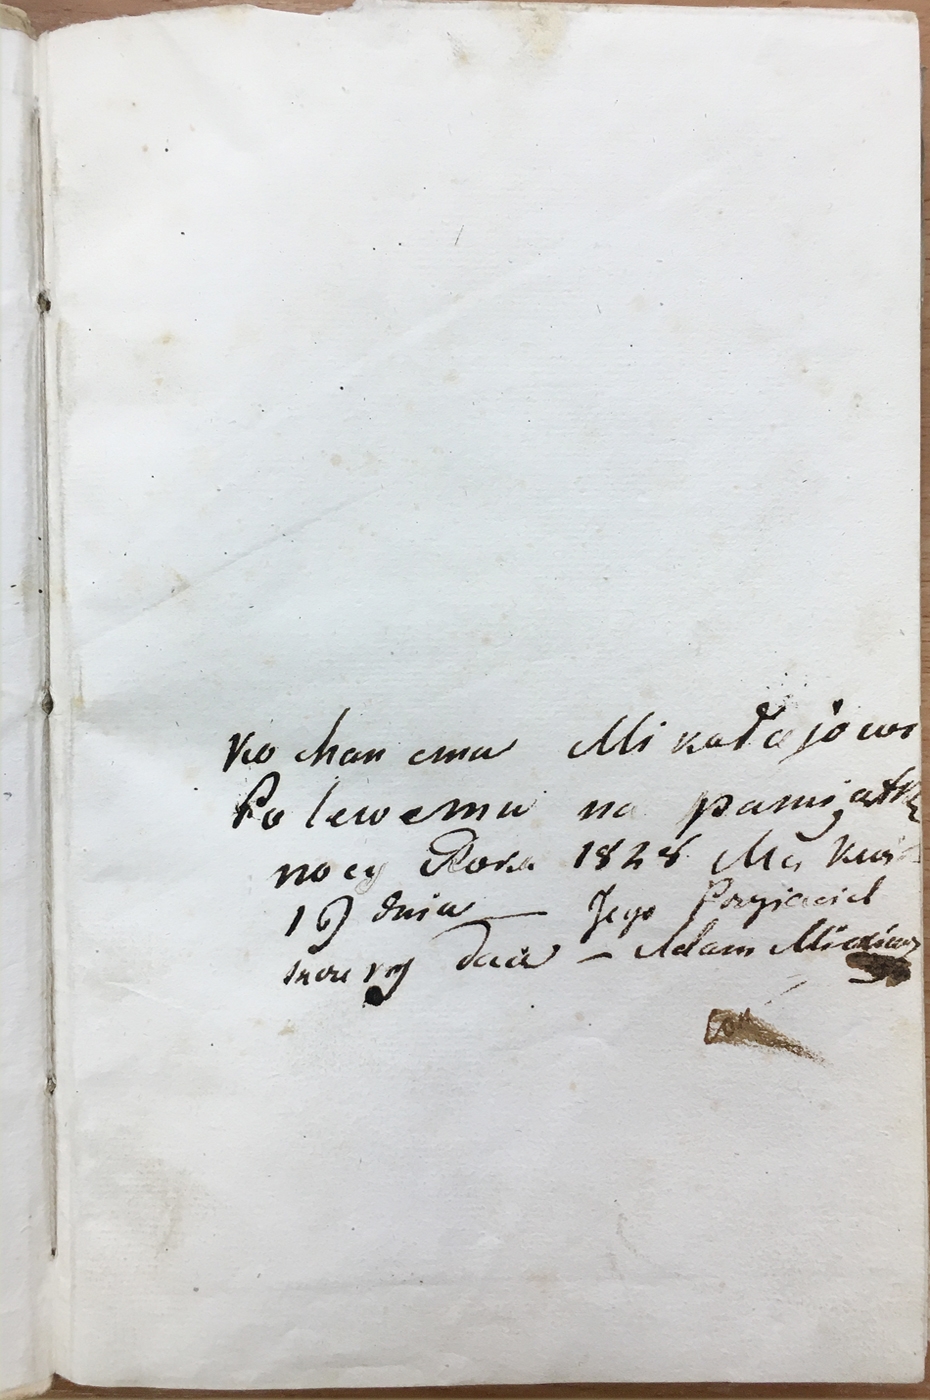 Kochanemu Mikołajowi
Polewemu na pamiątkę
nocy Roku 1828 Ma Kwi
19 dnia — Jego Przyjaciel
szczery daie — Adam Mickiewicz